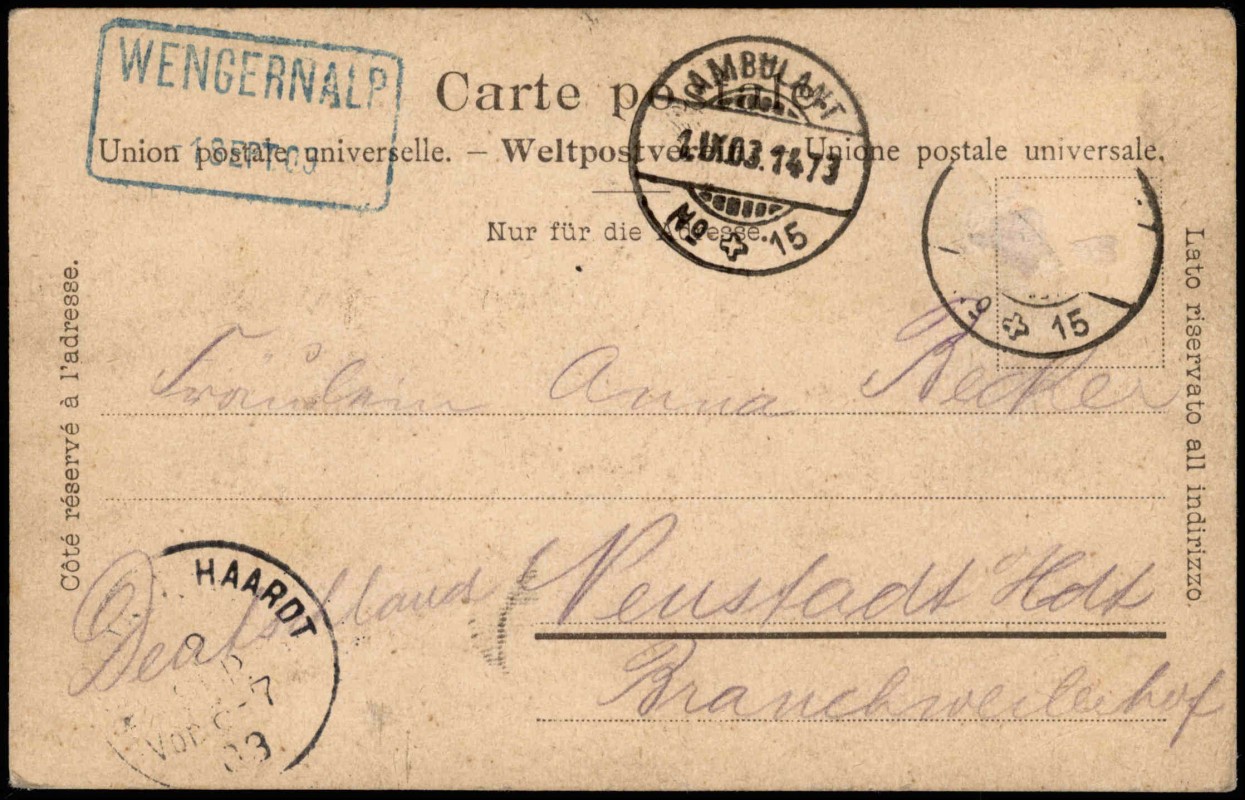 WENGERNALP
-1 SEPT 03
Carte postale
AMBULANT
1.IX.03.1473
No 15
Union postale universelle. – Weltpostverein – Unione postale universale.
Nur für die Adresse.
15
Côté réservé à l'adresse.
Lato riservato all indirizzo.
Fräulein Anna Becker
Deutschland Neustadt Hdt
Branchweilerhof
HAARDT
Vor. 6-7
03